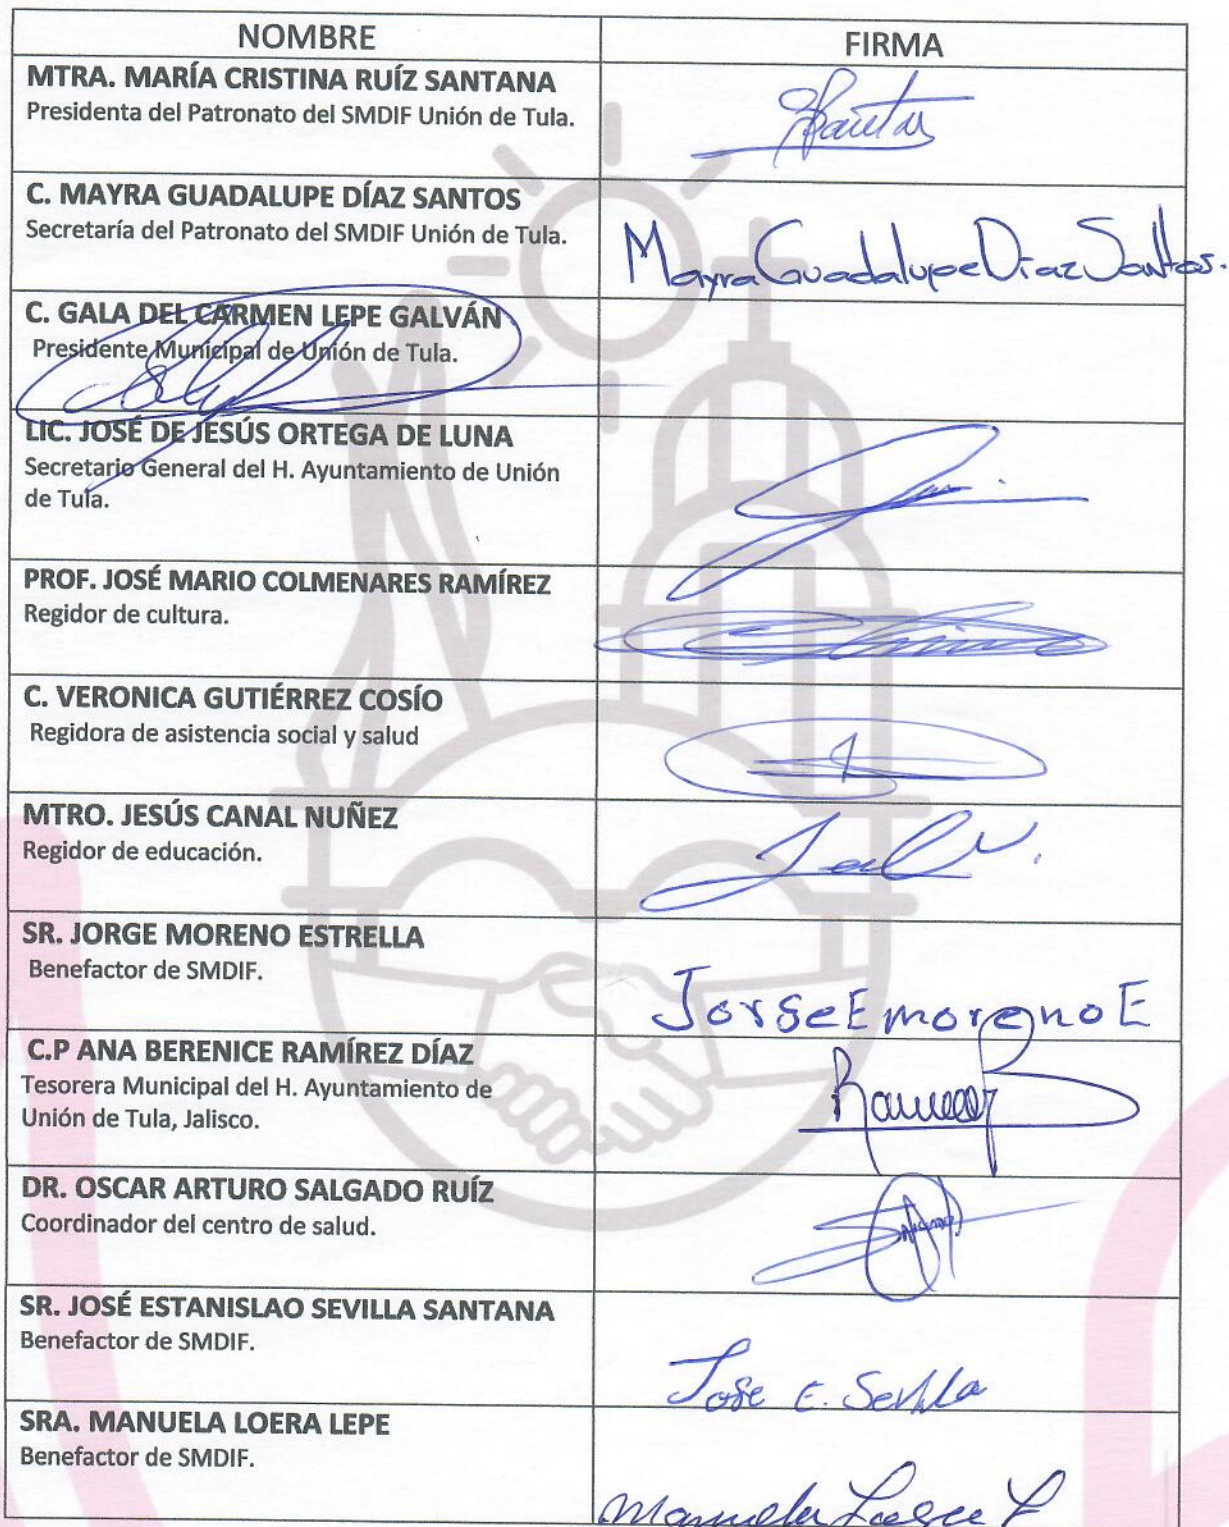 NOMBRE
FIRMA
MTRA. MARÍA CRISTINA RUÍZ SANTANA
Presidenta del Patronato del SMDIF Unión de Tula.
C. MAYRA GUADALUPE DÍAZ SANTOS
Secretaría del Patronato del SMDIF Unión de Tula.
Mayra Guadalupe Diaz Santos.
C. GALA DEL CARMEN LEPE GALVÁN
Presidente Municipal de Unión de Tula.
LIC. JOSÉ DE JESÚS ORTEGA DE LUNA
Secretario General del H. Ayuntamiento de Unión
de Tula.
PROF. JOSÉ MARIO COLMENARES RAMÍREZ
Regidor de cultura.
C. VERONICA GUTIÉRREZ COSÍO
Regidora de asistencia social y salud
MTRO. JESÚS CANAL NUÑEZ
Regidor de educación.
SR. JORGE MORENO ESTRELLA
Benefactor de SMDIF.
Jorge E moreno E
C.P ANA BERENICE RAMÍREZ DÍAZ
Tesorera Municipal del H. Ayuntamiento de
Unión de Tula, Jalisco.
DR. OSCAR ARTURO SALGADO RUÍZ
Coordinador del centro de salud.
SR. JOSÉ ESTANISLAO SEVILLA SANTANA
Benefactor de SMDIF.
Jose E. Sevilla
SRA. MANUELA LOERA LEPE
Benefactor de SMDIF.
Manuela Loera L